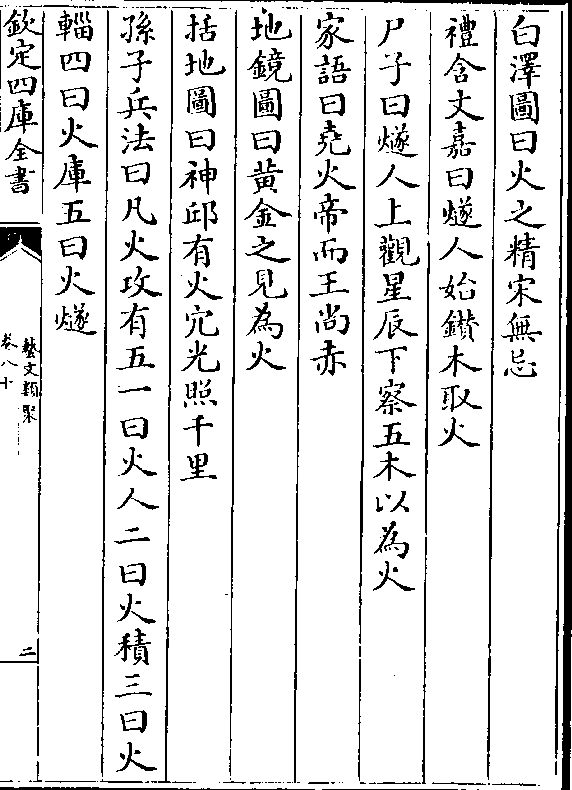 白澤圖曰火之精宋無忌
禮含文嘉曰燧人始鑚木取火
尸子曰燧人上觀星辰下察五木以為火
家語曰堯火帝而王尚赤
地鏡圖曰黄金之見為火
括地圖曰神邱有火穴光照千里
孫子兵法曰凡火攻有五一曰火人二曰火積三曰火
輜四曰火庫五曰火燧
欽定四庫全書
藝文類聚
卷八十
二